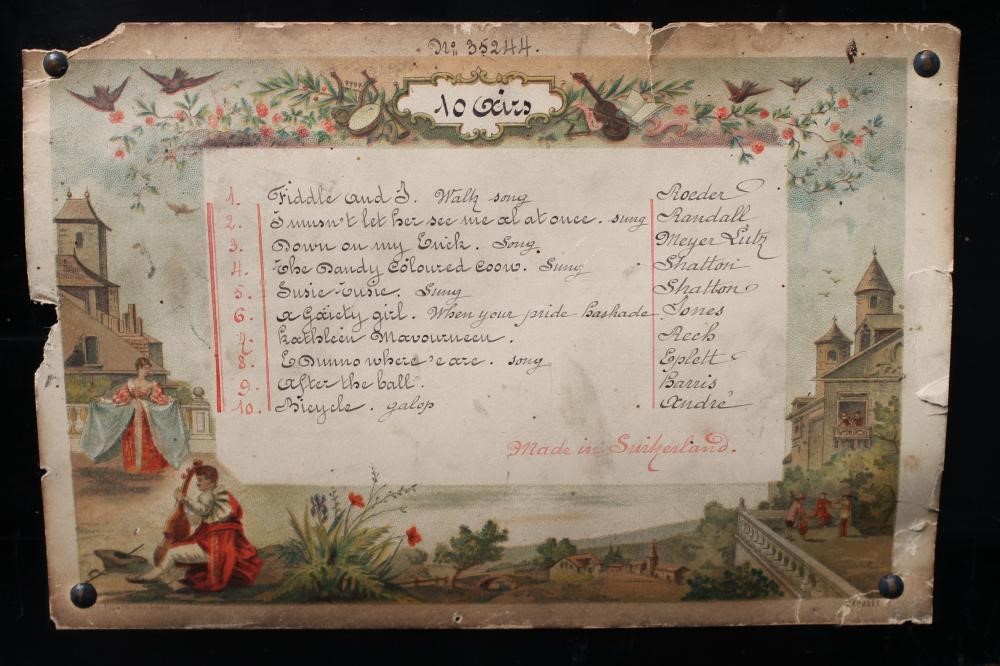 No 35244.
10 Airs
1. Fiddle and I. Waltz song Roeder
2. I musn't let her see me al at once. sung Randall
3. Down on my Luck. Song Meyer Lutz
4. The Dandy Coloured Coon. Sung Shatton
5. Susie-Tusie. Sung Shatton
6. A Gaiety girl. When your pride haskade. Jones
7. Kathleen Mavourneen.
8. E Dunno where'e are. song Eplett
9. After the ball. Harris
10. Bicycle. galop André
Made in Switzerland.